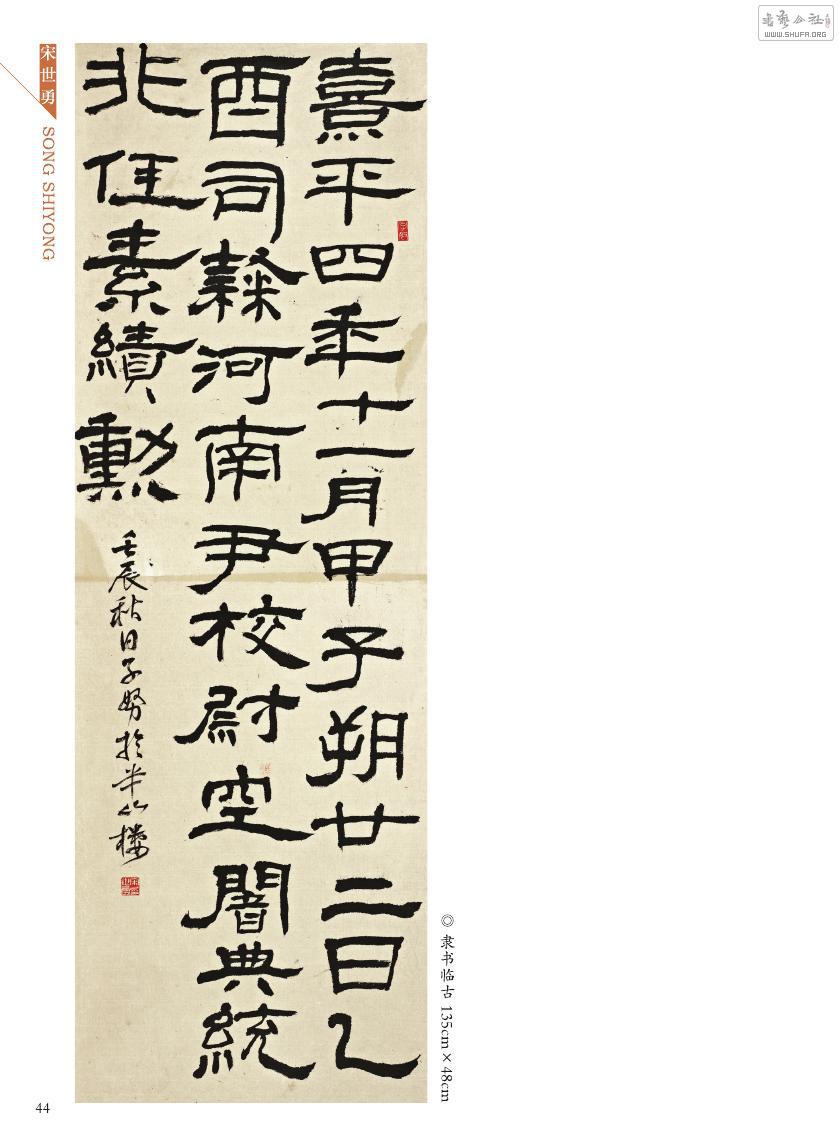 書藝公社
WWW.SHUFA.ORG
宋世勇
SONG SHIYONG
熹平四年十一月甲子朔廿二日乙
酉司隸河南尹校尉空闇典統
非任素績勳
壬辰秋日子努於半山樓
◎ 隶书临古 135cm×48cm
44